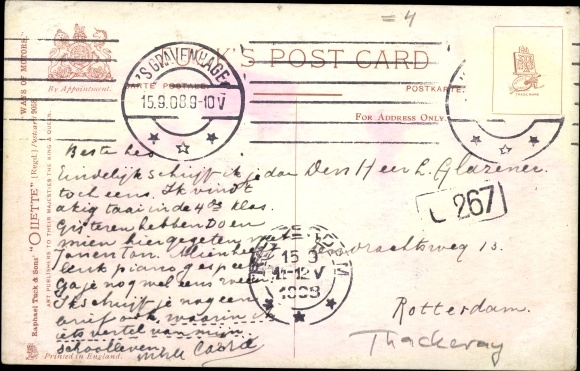 = 4
"WAYS OF MOTORS."
Raphael Tuck & Sons' "OILETTE" [Regd.] Postcard
ART PUBLISHERS TO THEIR MAJESTIES THE KING & QUEEN.
By Appointment.
K'S POST CARD
CARTE POSTALE.
POSTKARTE.
FOR ADDRESS ONLY.
TRADE MARK
'S GRAVENHAGE
15.9.08 9-10V
Beste
Eindelijk schrijf ik je dan
toch eens. Ik vindt
akig taai in de 4de klas.
Gisteren hebben Do en
mien hier gegeten met
Jan en Ton. Mien heeft
leuk piano gespeeld
Ga je nog wel eens
Ik schrijf je nog een
brief ook, waarin ik
iets vertel van mijn
schoolleven.
Den Heer L. Glazener.
267
15 9
11-12V
1908
13.
Rotterdam.
Thackeray
Printed in England.